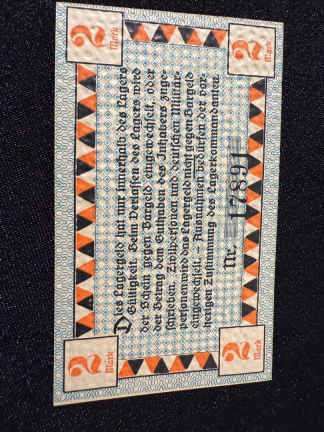 2 Mark
2 Mark
Dies Lagergeld hat nur innerhalb des Lagers
Gültigkeit. Beim Verlassen des Lagers wird
der Schein gegen Bargeld eingewechselt, oder
der Betrag dem Guthaben des Inhabers zuge-
schrieben. Zivilpersonen und deutschen Militär-
personen wird das Lagergeld nicht gegen Bargeld
eingewechselt. Ausnahmen bedürfen der vor-
herigen Zustimmung des Lagerkommandanten.
Nr. 17891
2 Mark
2 Mark